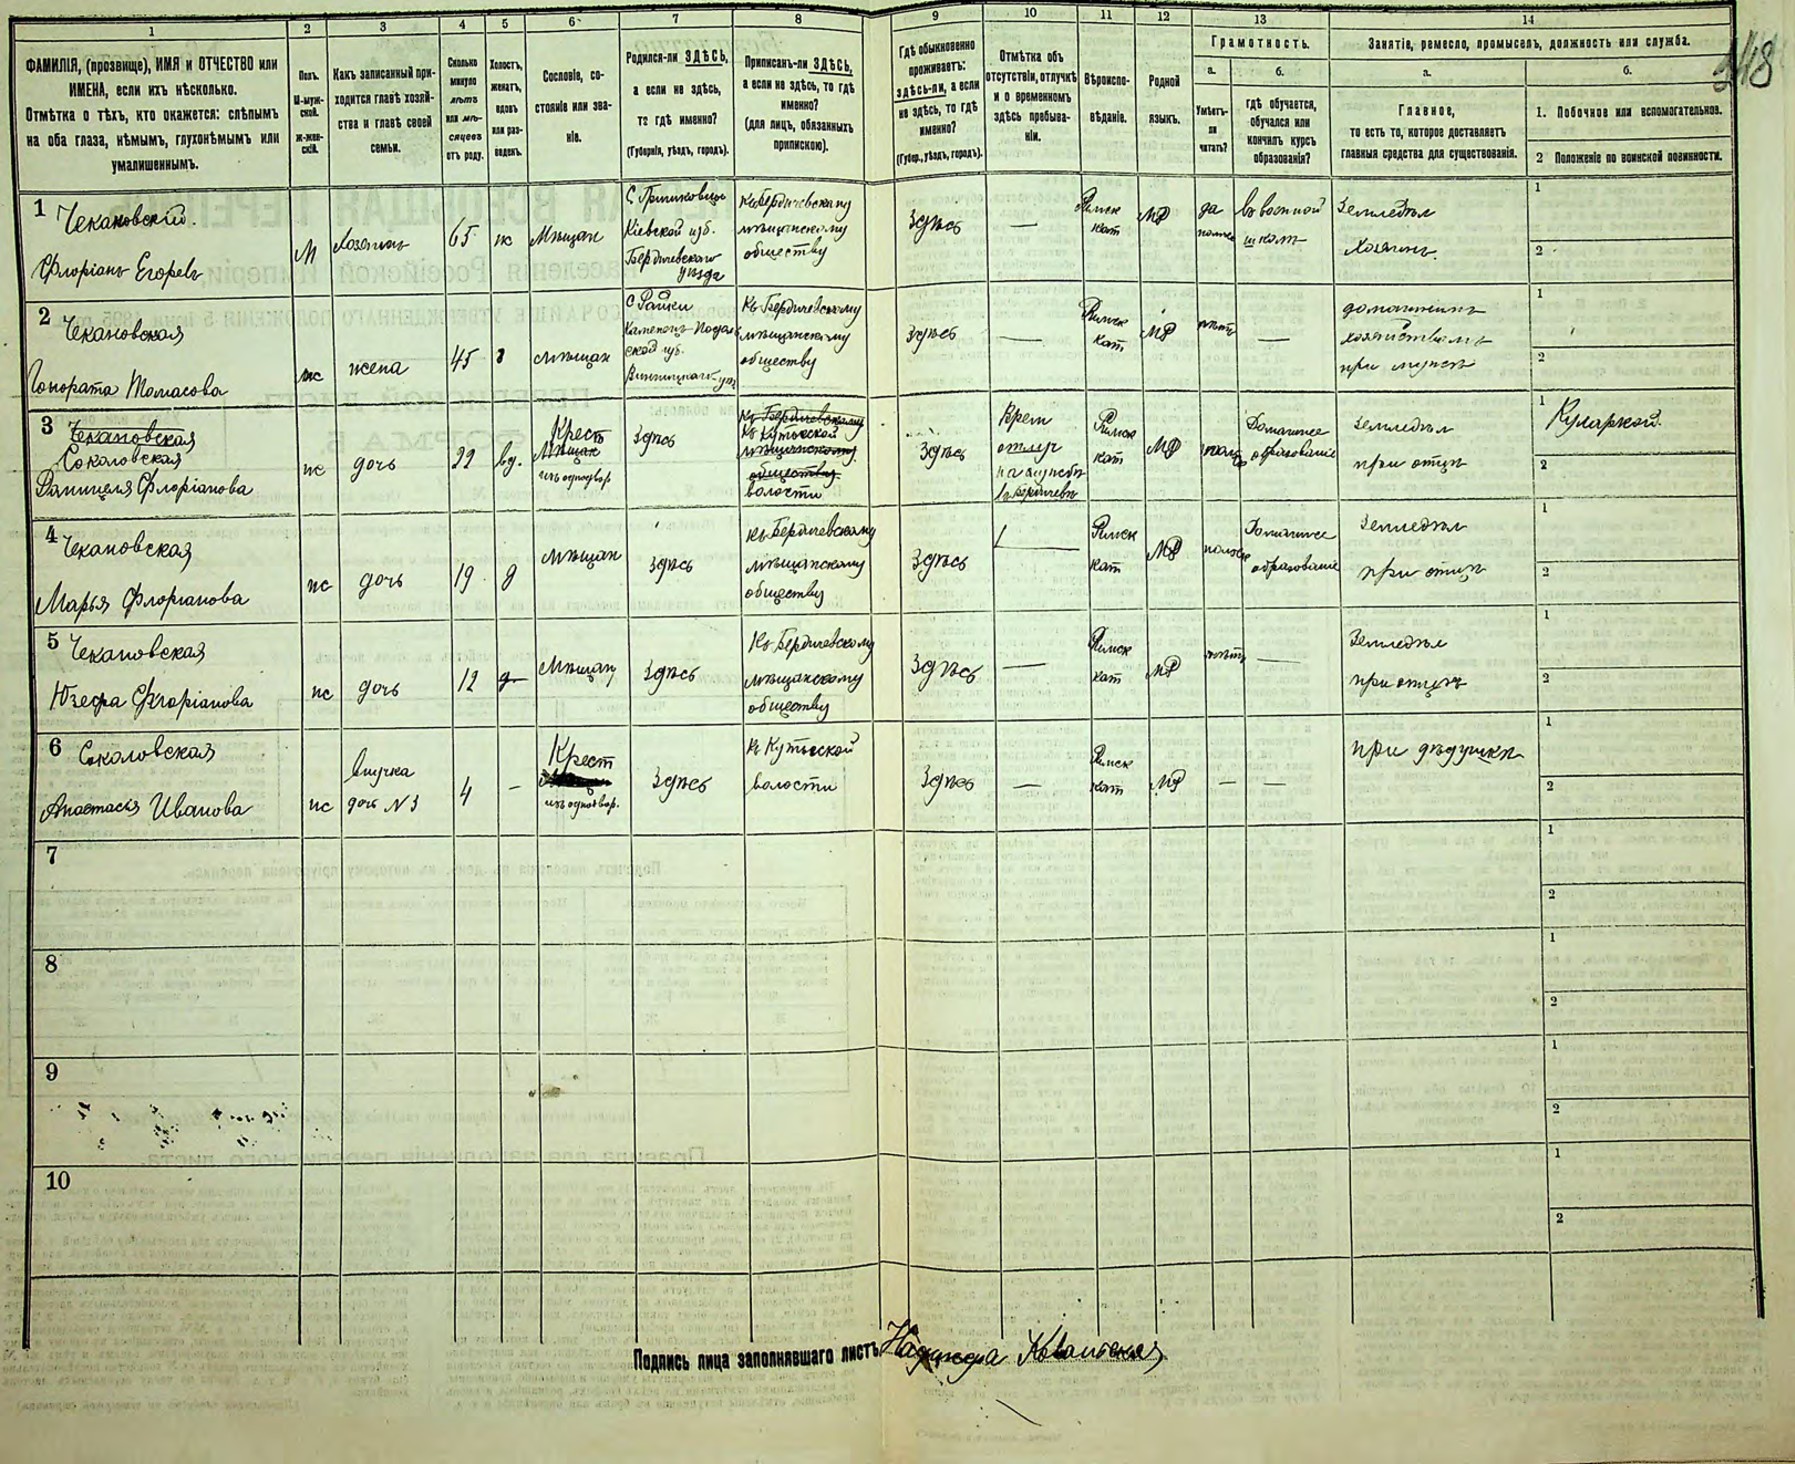 1 2 3 4 5 6 7 8 9 10 11 12 13 14
ФАМИЛІЯ, (прозвище), ИМЯ и ОТЧЕСТВО или
ИМЕНА, если ихъ нѣсколько.
Отмѣтка о тѣхъ, кто окажется: слѣпымъ
на оба глаза, нѣмымъ, глухонѣмымъ или
умалишеннымъ.
Полъ.
М-муж-
ской.
Ж-жен-
скій.
Какъ записанный при-
ходится главѣ хозяй-
ства и главѣ своей
семьи.
Сколько
минуло
лѣтъ
или мѣ-
сяцевъ
отъ роду.
Холостъ,
женатъ,
вдовъ
или раз-
веденъ.
Сословіе, со-
стояніе или зва-
ніе.
Родился-ли ЗДѢСЬ,
а если не здѣсь,
то гдѣ именно?
(Губернія, уѣздъ, городъ).
Приписанъ-ли ЗДѢСЬ,
а если не здѣсь, то гдѣ
именно?
(для лицъ, обязанныхъ
припискою).
Гдѣ обыкновенно
проживаетъ:
здѣсь-ли, а если
не здѣсь, то гдѣ
именно?
(Губер., уѣздъ, городъ).
Отмѣтка объ
отсутствіи, отлучкѣ
и о временномъ
здѣсь пребыва-
ніи.
Вѣроиспо-
вѣданіе.
Родной
языкъ.
Грамотность.
а.
Умѣетъ-
ли
читать?
б.
гдѣ обучается,
обучался или
кончилъ курсъ
образованія?
Занятіе, ремесло, промыселъ, должность или служба.
а.
Главное,
то есть то, которое доставляетъ
главныя средства для существованія.
б.
1. Побочное или вспомогательное.
2 Положеніе по воинской повинности.
1 Чекановскій.
Флоріанъ Егоревъ
М
Хозяинъ
65
ж
Мѣщан
Кіевской губ.
Бердичевскаго
уѣзда
Къ Бердичевскому
мѣщанскому
обществу
Здѣсь
—
Римск
кат
да
въ военной
школѣ
Земледѣл
Хозяинъ.
1
2
2 Чекановская
Гонората Томасова
ж
жена
45
з
мѣщан
Къ Бердичевскому
мѣщанскому
обществу
Здѣсь
—
Римск
кат
нѣтъ
—
домашнимъ
хозяйствомъ
при мужѣ
1
2
3 Чекановская
Соколовская
Даницеля Флоріанова
ж
дочь
22
вд.
Крест
Мѣщан
изъ однодвор.
Здѣсь
Къ Бердичевскому
Къ Кутысской
мѣщанскому
обществу
волости
Здѣсь
Врем
отлуч
Римск
кат
Домашнее
образованіе
Земледѣл
при отцѣ
1
2
4 Чекановская
Марья Флоріанова
ж
дочь
19
д
мѣщан
Здѣсь
Къ Бердичевскому
мѣщанскому
обществу
Здѣсь
—
Римск
кат
Домашнее
образованіе
Земледѣл
при отцѣ
1
2
5 Чекановская
Юзефа Флоріанова
ж
дочь
12
д
Мѣщан
Здѣсь
Къ Бердичевскому
мѣщанскому
обществу
Здѣсь
—
Римск
кат
нѣтъ
—
Земледѣл
при отцѣ
1
2
6 Соколовская
Анастасья Иванова
ж
Внучка
дочь №3
4
—
Крест
изъ однодвор.
Здѣсь
къ Кутысской
волости
Здѣсь
—
Римск
кат
—
—
при дѣдушкѣ
1
2
7
1
2
8
1
2
9
1
2
10
1
2
Подпись лица заполнявшаго листъ